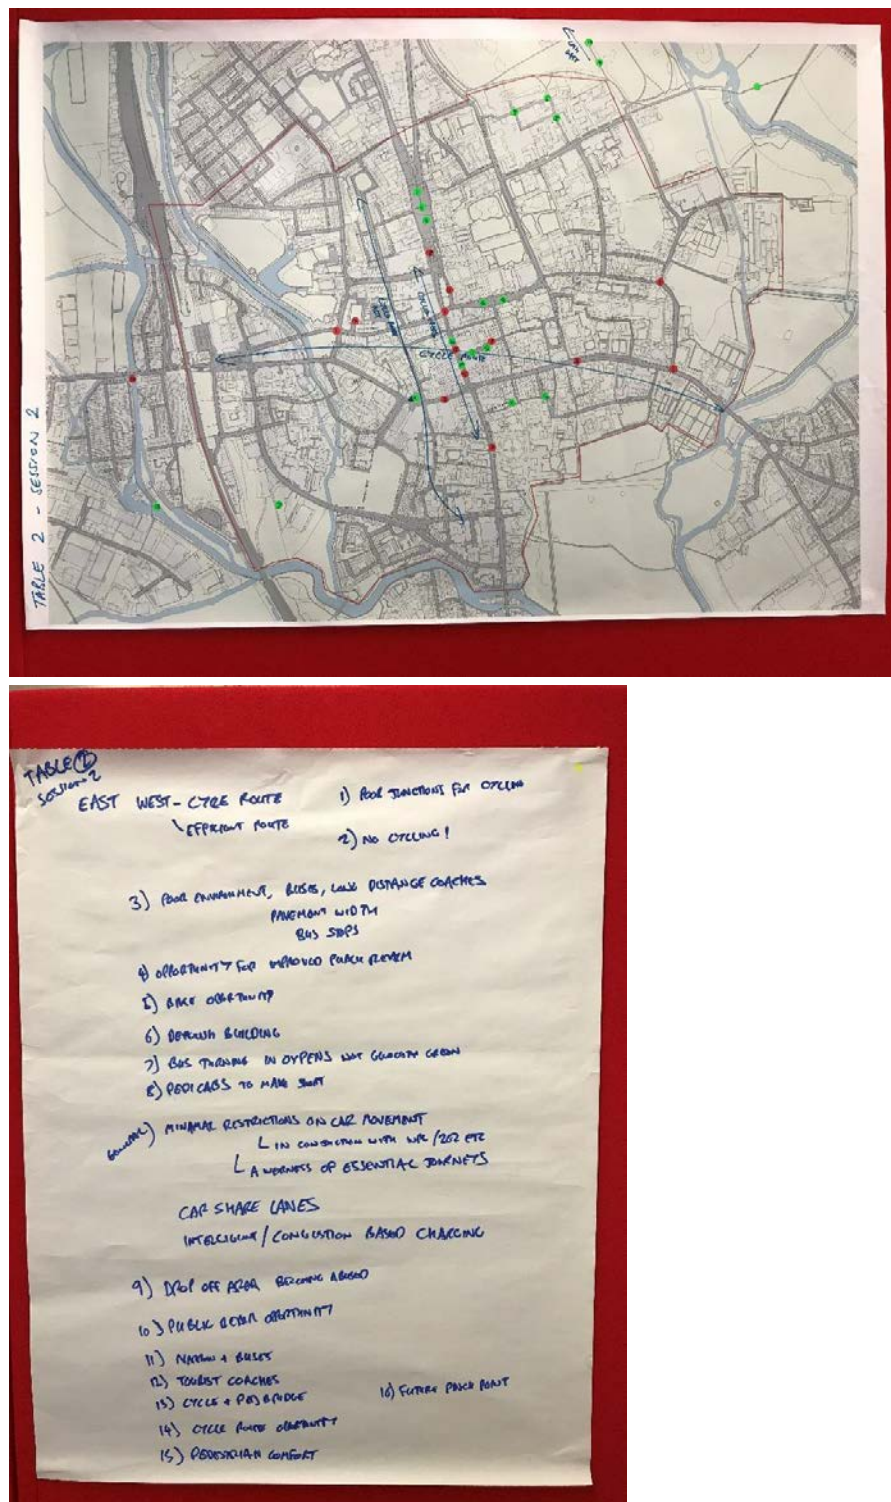 TABLE 2 - SESSION 2
CYCLE ROUTE
TABLE 2
SESSION 2
EAST WEST - CYCLE ROUTE
EFFICIENT ROUTE
1) POOR JUNCTIONS FOR CYCLING
2) NO CYCLING!
3) POOR ENVIRONMENT, BUSES, LONG DISTANCE COACHES
PAVEMENT WIDTH
BUS STOPS
4) OPPORTUNITY FOR IMPROVED PUBLIC REALM
5) BIKE OPPORTUNITY
6) DEMOLISH BUILDING
7) BUS TURNING IN OXPENS NOT GLOUCESTER GREEN
8) PEDICABS TO MAKE
GENERAL) MINIMAL RESTRICTIONS ON CAR MOVEMENT
IN CONJUNCTION WITH WPL/ZEZ ETC
AWARENESS OF ESSENTIAL JOURNEYS
CAR SHARE LANES
INTELLIGENT/CONGESTION BASED CHARGING
9) DROP OFF AREA BECOMING ABUSED
10) PUBLIC REALM OPPORTUNITY
11) NARROW + BUSES
12) TOURIST COACHES
13) CYCLE + PED BRIDGE
14) CYCLE ROUTE OPPORTUNITY
15) PEDESTRIAN COMFORT
16) FUTURE PINCH POINT